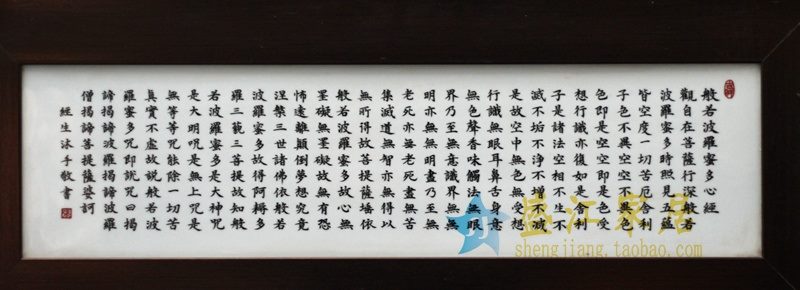 般若波羅蜜多心經
觀自在菩薩行深般若
波羅蜜多時照見五蘊
皆空度一切苦厄舍利
子色不異空空不異色
色即是空空即是色受
想行識亦復如是舍利
子是諸法空相不生不
滅不垢不淨不增不減
是故空中無色無受想
行識無眼耳鼻舌身意
無色聲香味觸法無眼
界乃至無意識界無無
明亦無無明盡乃至無
老死亦無老死盡無苦
集滅道無智亦無得以
無所得故菩提薩埵依
般若波羅蜜多故心無
罣礙無罣礙故無有恐
怖遠離顛倒夢想究竟
涅槃三世諸佛依般若
波羅蜜多故得阿耨多
羅三藐三菩提故知般
若波羅蜜多是大神咒
是大明咒是無上咒是
無等等咒能除一切苦
真實不虛故說般若波
羅蜜多咒即說咒曰揭
諦揭諦波羅揭諦波羅
僧揭諦菩提薩婆訶
經生沐手敬書
盛江家居
shengjiang.taobao.com